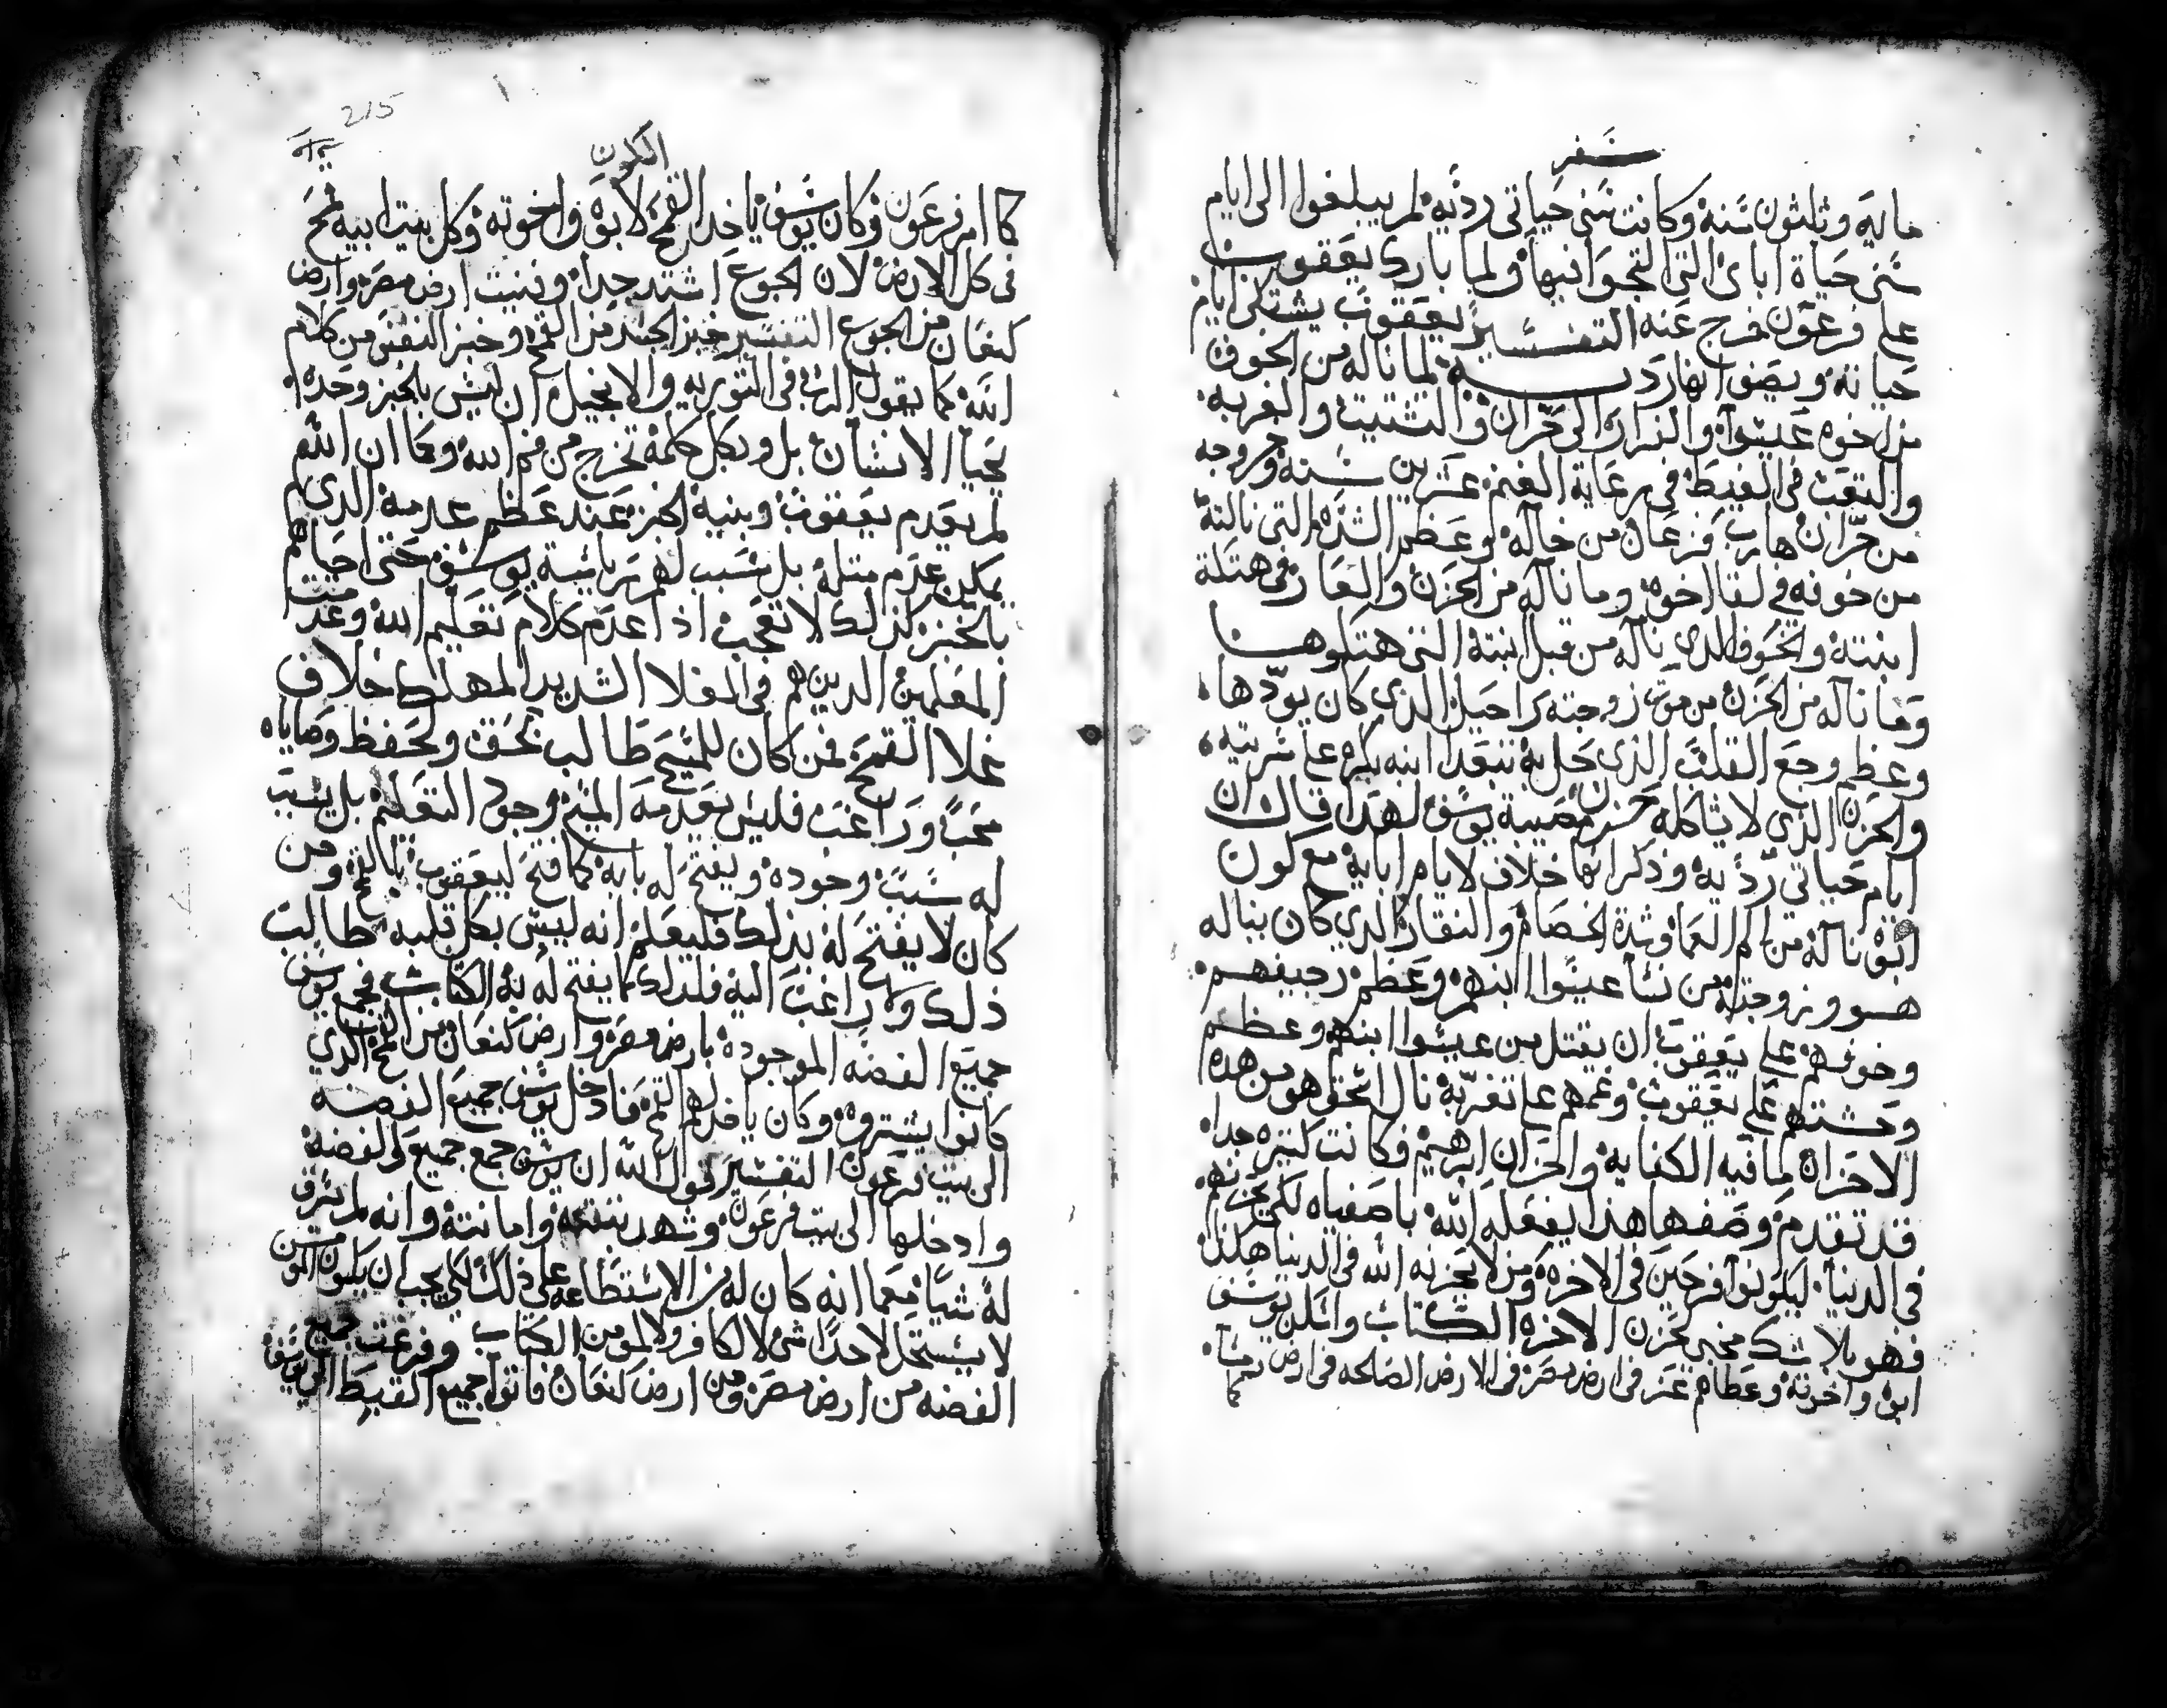 سفر
مايه وثلثون سنه وكانت سنى حياتى رديه لم يبلغوا الى ايام
سنى حياة اباى التى التجوا فيها ولما بارك يعقوب
على فرعون خرج عنه التفسير يعقوب يشتكى ايام
حياته ويصف انها رديه لما ناله من الخوف
من اخوه عيسوا والفرار الى حران والتشتيت والغربه
والتعب فى الغيط فى رعاية الغنم عشرين سنه وخروجه
من حران هارب فزعان من خاله وعظم الشده التى نالته
من خوفه في لقا اخوه وما ناله من الحزن والعار فى هتكة
ابنته والخوف الدي ناله من قبل ابنته التى هتكوها
وما ناله من الحزن من موت زوجته راحيل الدي كان يودها
وعظم وجع القلب الذي حل به بتعدا ابنه بكره على سريته
والحزن الذي لا يشاكله حزن مصيبة يوسف لهدا قال ان
ايام حياتي رديه وذكر انها خلاف لايام ابايه مع كون
ابوه ناله من الم العما وشدة الخصام والنقار الدي كان يناله
هو وزوجته من نسا عيسوا ابنهم وعظم رجيفهم
وخوفهم على يعقوب ان يقتل من عيسوا ابنهم وعظم
وحشتهم على يعقوب وغمهم على تغربه نال اسحق هو من هده
الاحزان لما فيه الكفايه والحزان ابرهيم فكانت كثيره جدا
قد تقدم وصفها هذا يفعله الله باصفياه لكى يحزنهم
فى الدنيا ليكونوا فرحين فى الاخره ومن لا يحزنه الله فى الدنيا هكذا
فهو بلا شك مخبى لحزن الاخره الكتاب واسكن يوسف
ابوه واخوته وعطاهم غنز فى ارض مصر فى الارض الصلحه فى ارض رمسا
كما
215
الكون
كما امر فرعون وكان يوسف ياخد القمح لابوه واخوته وكل بيت ابيه قمح
فى كل الارض لان الجوع اشتد جدا وفنيت ارض مصر وارض
كنعان من الجوع التفسير خبز الجسد من القمح وخبز النفس من كلام
الله كما يقول الرب فى التوريه والانجيل ان ليس بالخبز وحده
يحيا الانسان بل وبكل كلمة تخرج من فم الله وكما ان الله
لم يعدم يعقوب وبنيه الخبز عند عظم عدمه الدي
يمكن عدم مثله بل سبب لهم برياسة يوسف حتى احياهم
بالخبز كذلك لا تعجب اذا عدم كلام تعليم الله وعدمت
المعلمين الدين هم فى الغلا الشديد المهلك خلاف
غلا القمح فمن كان للمسيح طالب بحق ولحفظ وصاياه
محب وراغب فليس يعدمه المسيح وجود التعليم بل يسبب
له سبب وجوده ويفتح له بابه كما فتح ليعقوب باب القمح ومن
كان لا يفتح له بذلك فليعلم انه ليس بكل قلبه طالب
ذلك ولا راغب اليه فلدلك ما يفتح له به الكتاب فجمع يوسف
جميع الفضه الموجوده بارض مصر وارض كنعان من القمح الدي
كانوا يشتروه وكان ياخد لهم القمح فادخل يوسف جميع الفضه
الى بيت فرعون التفسير قول الله ان يوسف جمع جميع الفضه
وادخلها الى بيت فرعون وشهد بثقته وامانته وانه لم يسرق
له شيا معما انه كان له من الاستطاعه على ذلك لكى يجب ان يكون المومن
لا يستحل لاحدا شى لا لكافر ولا لمومن الكتاب وفرغت جميع
الفضه من ارض مصر ومن ارض كنعان فاتوا جميع القبط الى يوسف